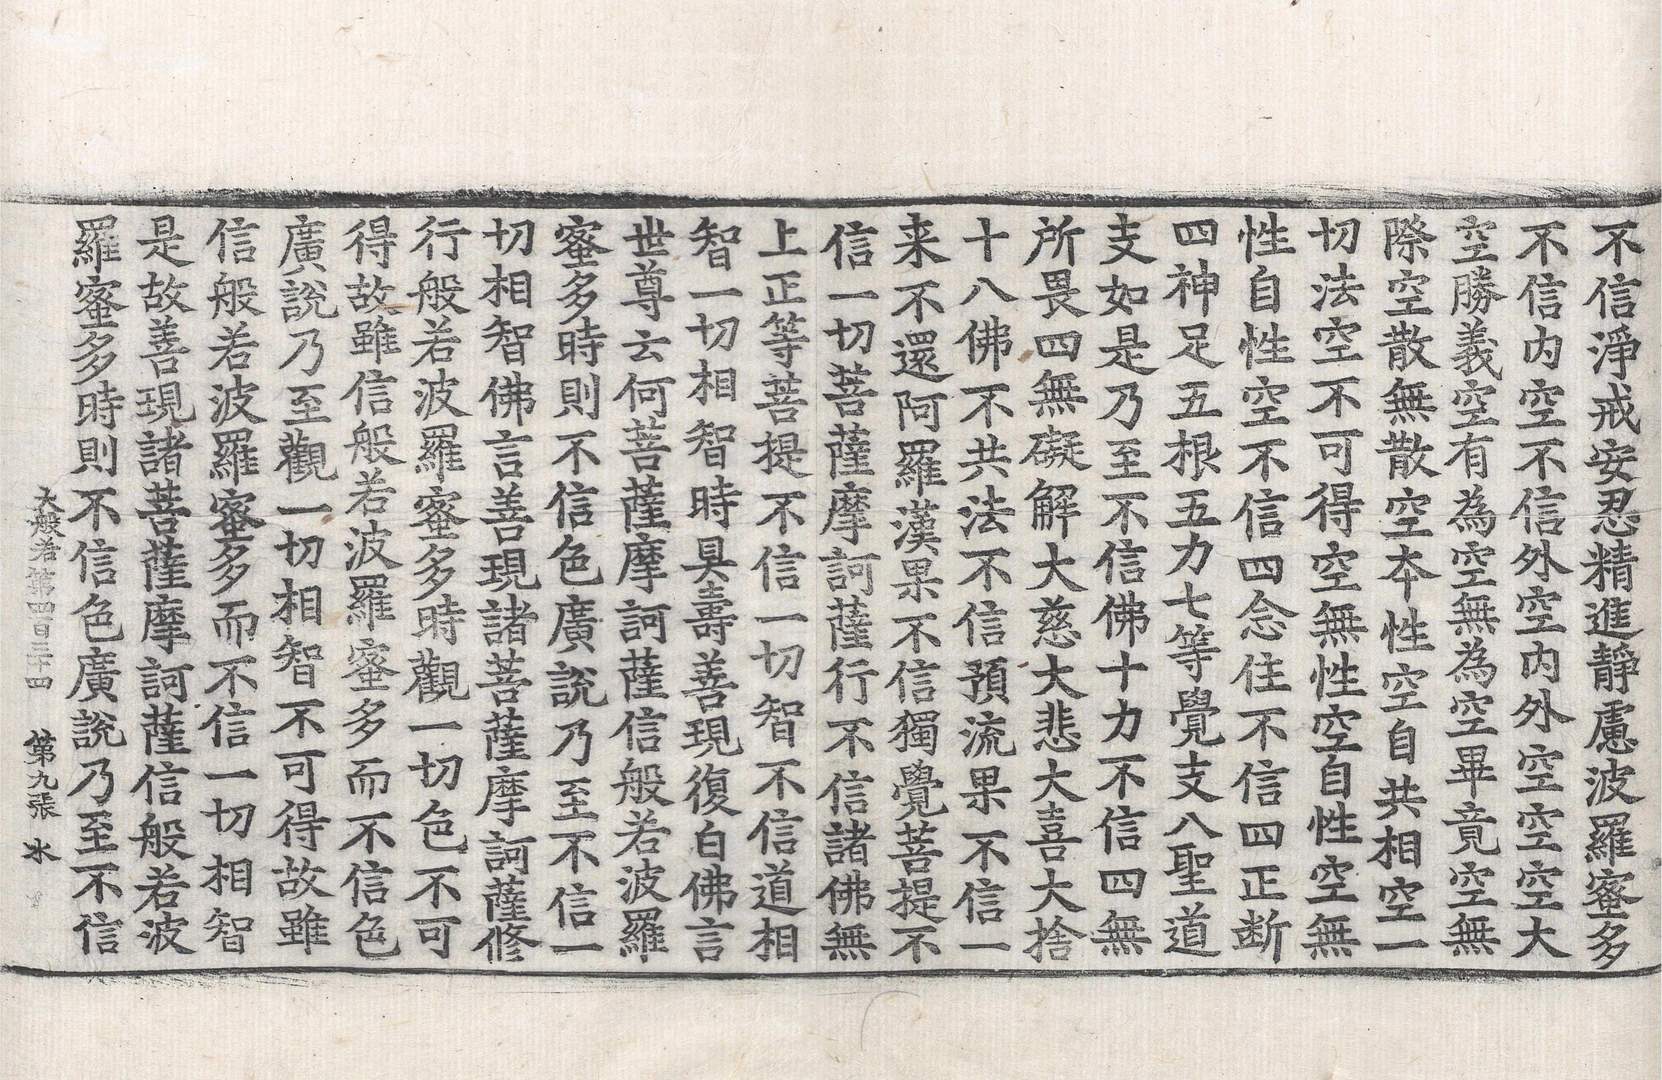 不信淨戒安忍精進靜慮波羅蜜多
不信內空不信外空內外空空空大
空勝義空有為空無為空畢竟空無
際空散無散空本性空自共相空一
切法空不可得空無性空自性空無
性自性空不信四念住不信四正断
四神足五根五力七等覺支八聖道
支如是乃至不信佛十力不信四無
所畏四無礙解大慈大悲大喜大捨
十八佛不共法不信預流果不信一
来不還阿羅漢果不信獨覺菩提不
信一切菩薩摩訶薩行不信諸佛無
上正等菩提不信一切智不信道相
智一切相智時具壽善現復白佛言
世尊云何菩薩摩訶薩信般若波羅
蜜多時則不信色廣說乃至不信一
切相智佛言善現諸菩薩摩訶薩修
行般若波羅蜜多時觀一切色不可
得故雖信般若波羅蜜多而不信色
廣說乃至觀一切相智不可得故雖
信般若波羅蜜多而不信一切相智
是故善現諸菩薩摩訶薩信般若波
羅蜜多時則不信色廣說乃至不信
大般若第四百三十四 第九張 氷